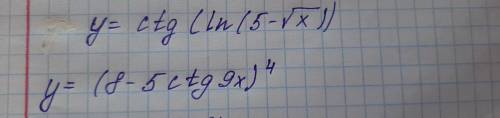 y = ctg (ln (5 - √x))
y = (8 - 5 ctg 9x)⁴